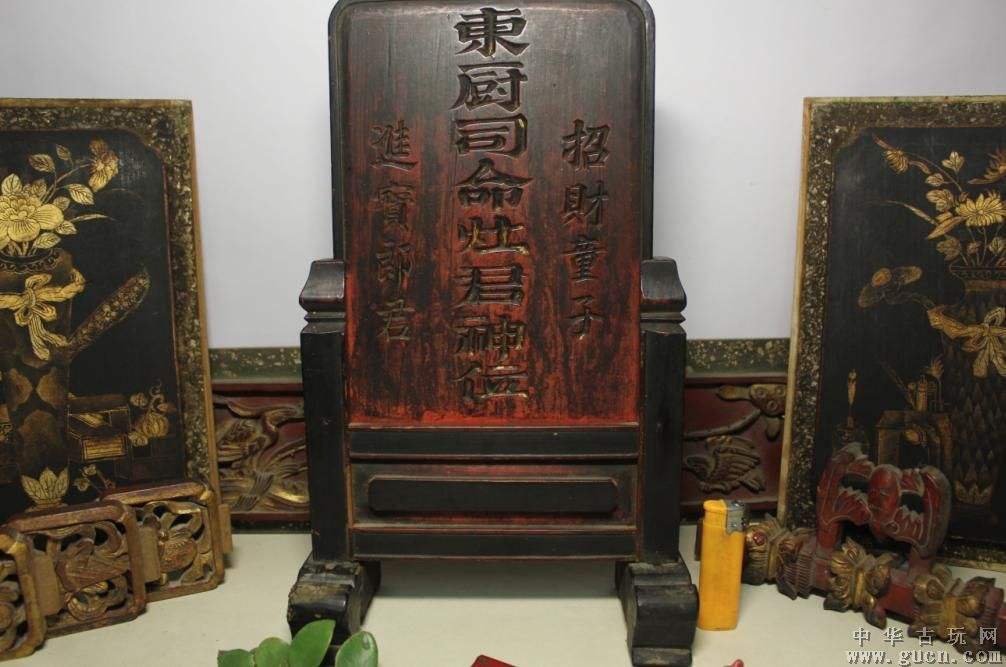 東厨司命灶君神位
招財童子
進寳郎君
中华古玩网
www.gucn.com